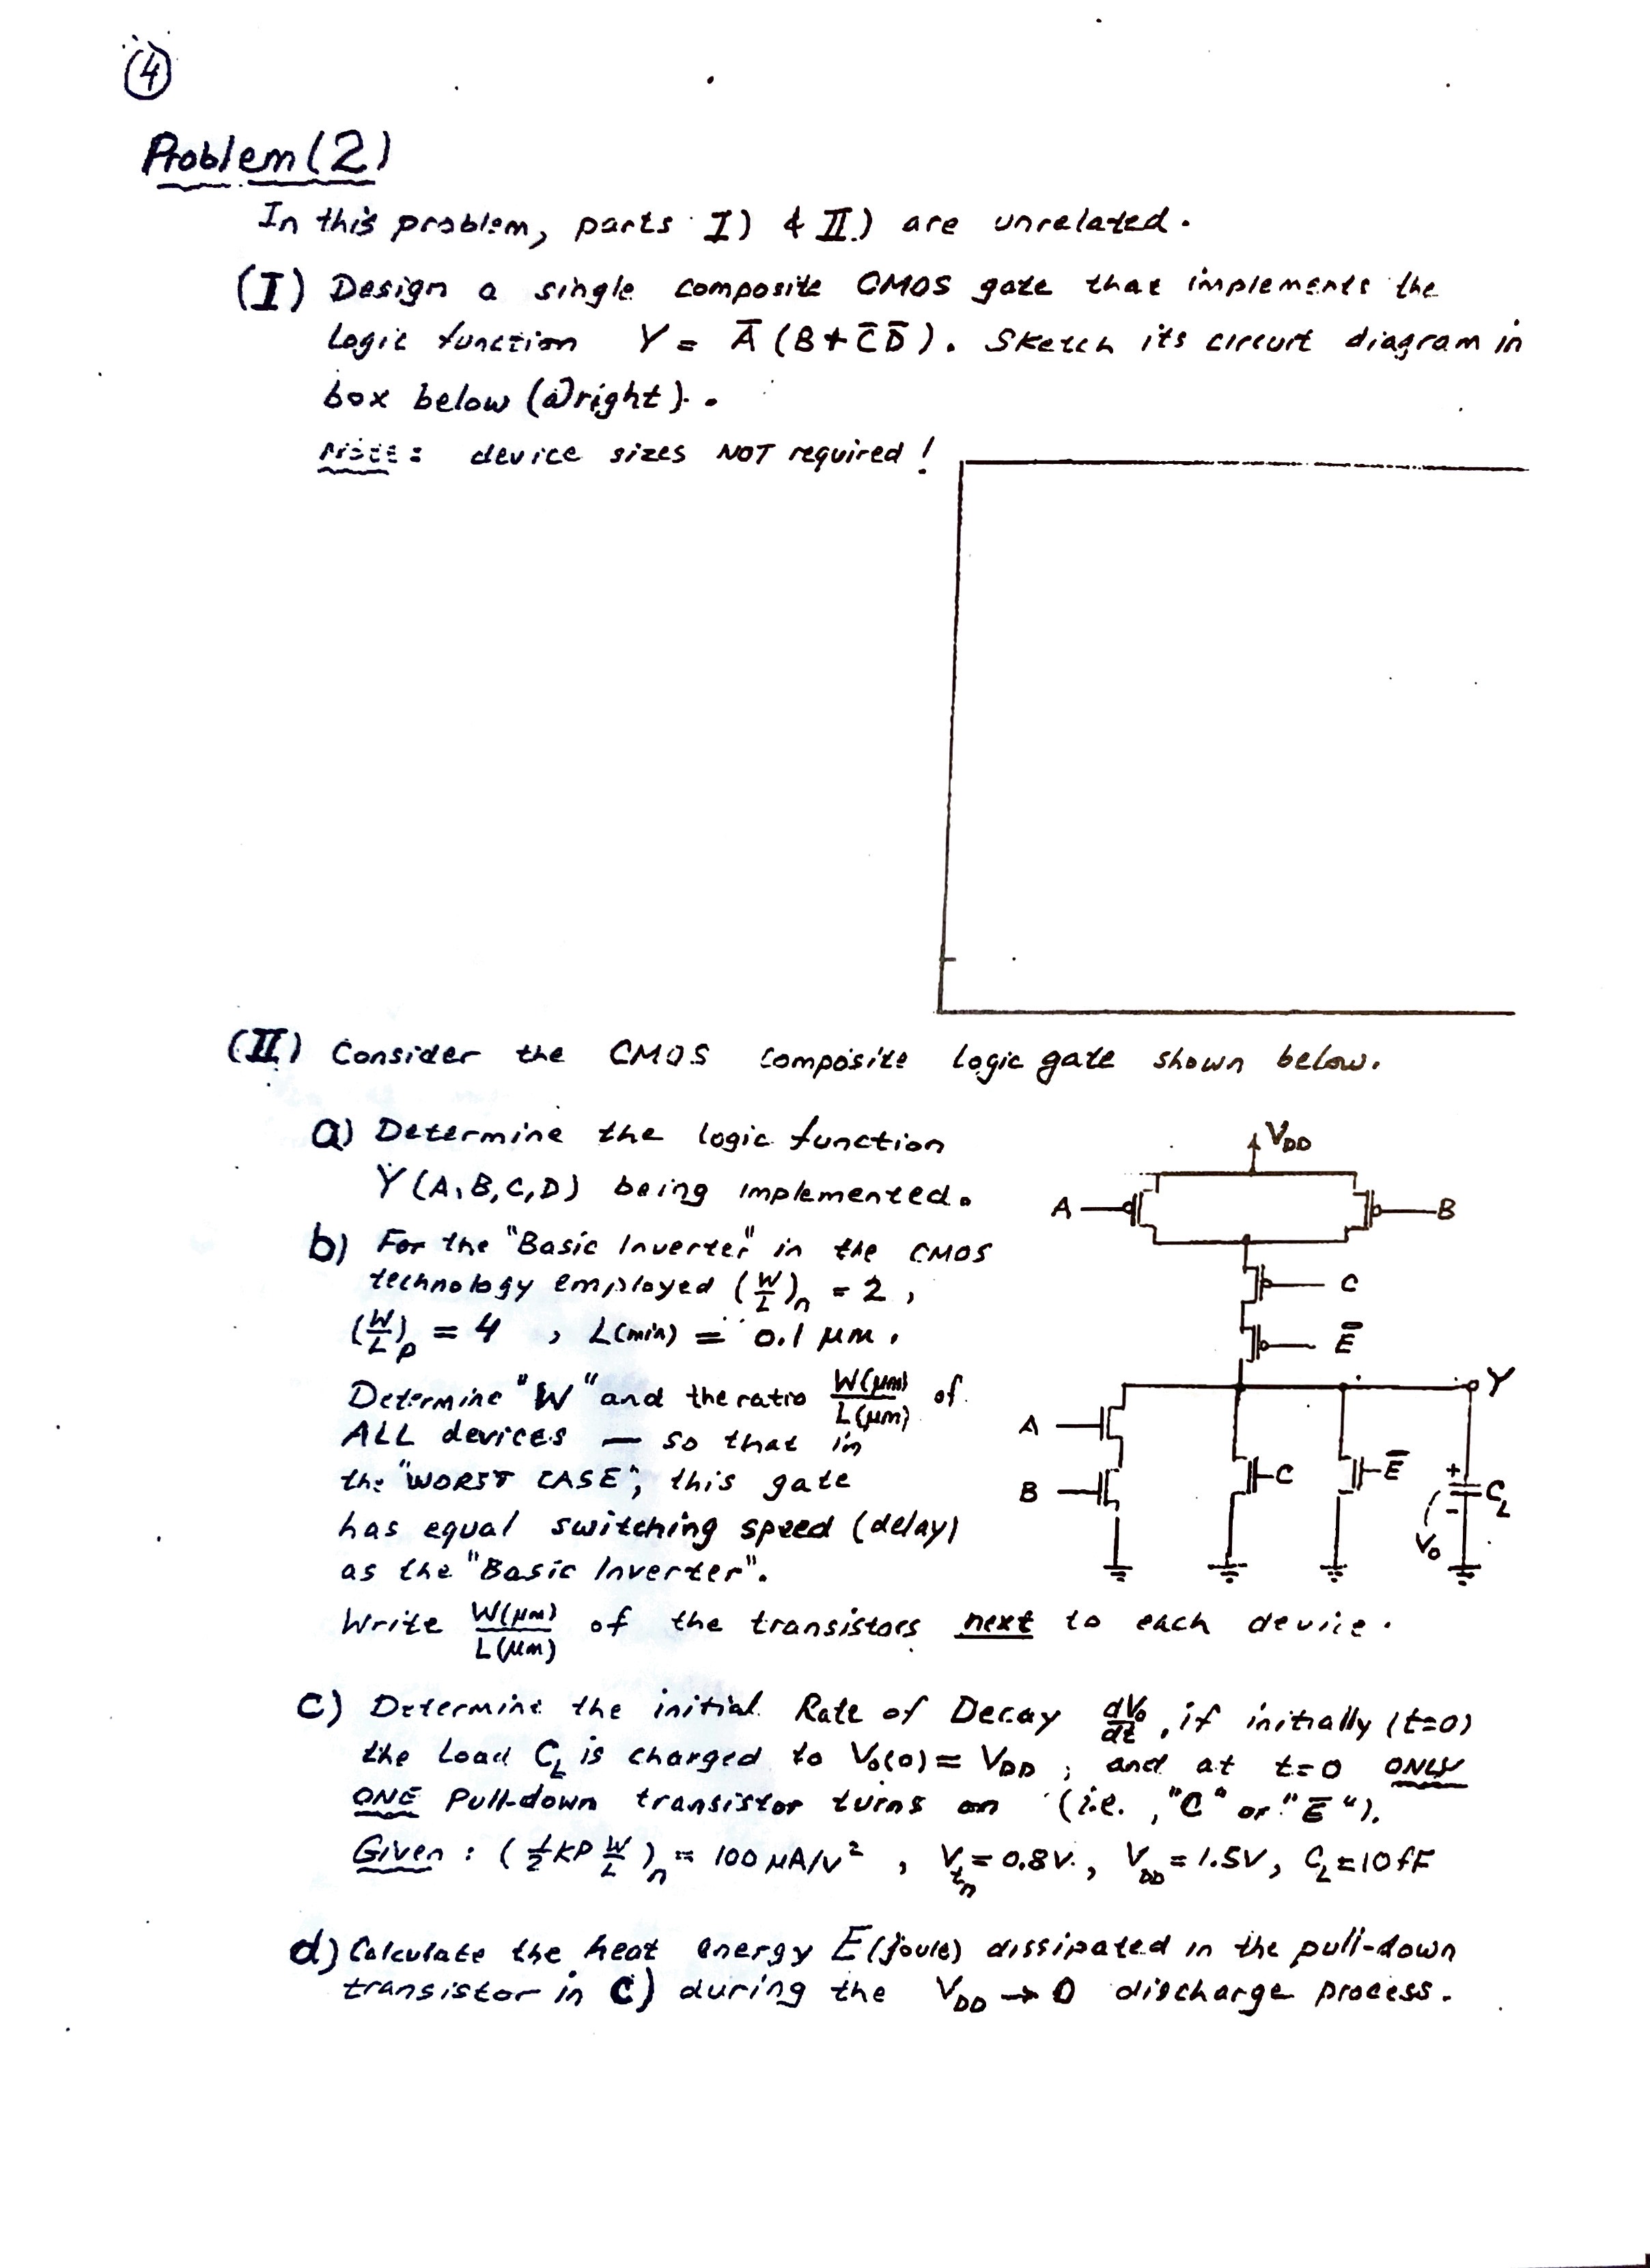 ④
Problem(2)
In this problem, parts I) & II.) are unrelated.
(I) Design a single composite CMOS gate that implements the
Logic function Y = A̅ (B + C̅ D̅). Sketch its circuit diagram in
box below (@right).
Note: device sizes NOT required!
(II) Consider the CMOS composite logic gate shown below.
a) Determine the logic function
Y(A,B,C,D) being implemented.
b) For the "Basic Inverter" in the CMOS
technology employed (W/L)n = 2,
(W/L)p = 4, L(min) = 0.1 μm.
Determine "W" and the ratio W(μm)/L(μm) of
ALL devices — so that in
the "WORST CASE", this gate
has equal switching speed (delay)
as the "Basic Inverter".
Write W(μm)/L(μm) of the transistors next to each device.
VDD
A
B
C
E̅
Y
A
B
C
E̅
+
-
CL
Vo
c) Determine the initial Rate of Decay dVo/dt, if initially (t=0)
the Load CL is charged to Vo(0) = VDD, and at t=0 ONLY
ONE Pull-down transistor turns on (i.e., "C" or "E̅").
Given: (½ KP W/L)n = 100 μA/V², Vtn = 0.8V., VDD = 1.5V, CL = 10fF
d) Calculate the heat energy E(joule) dissipated in the pull-down
transistor in C) during the VDD → 0 discharge process.